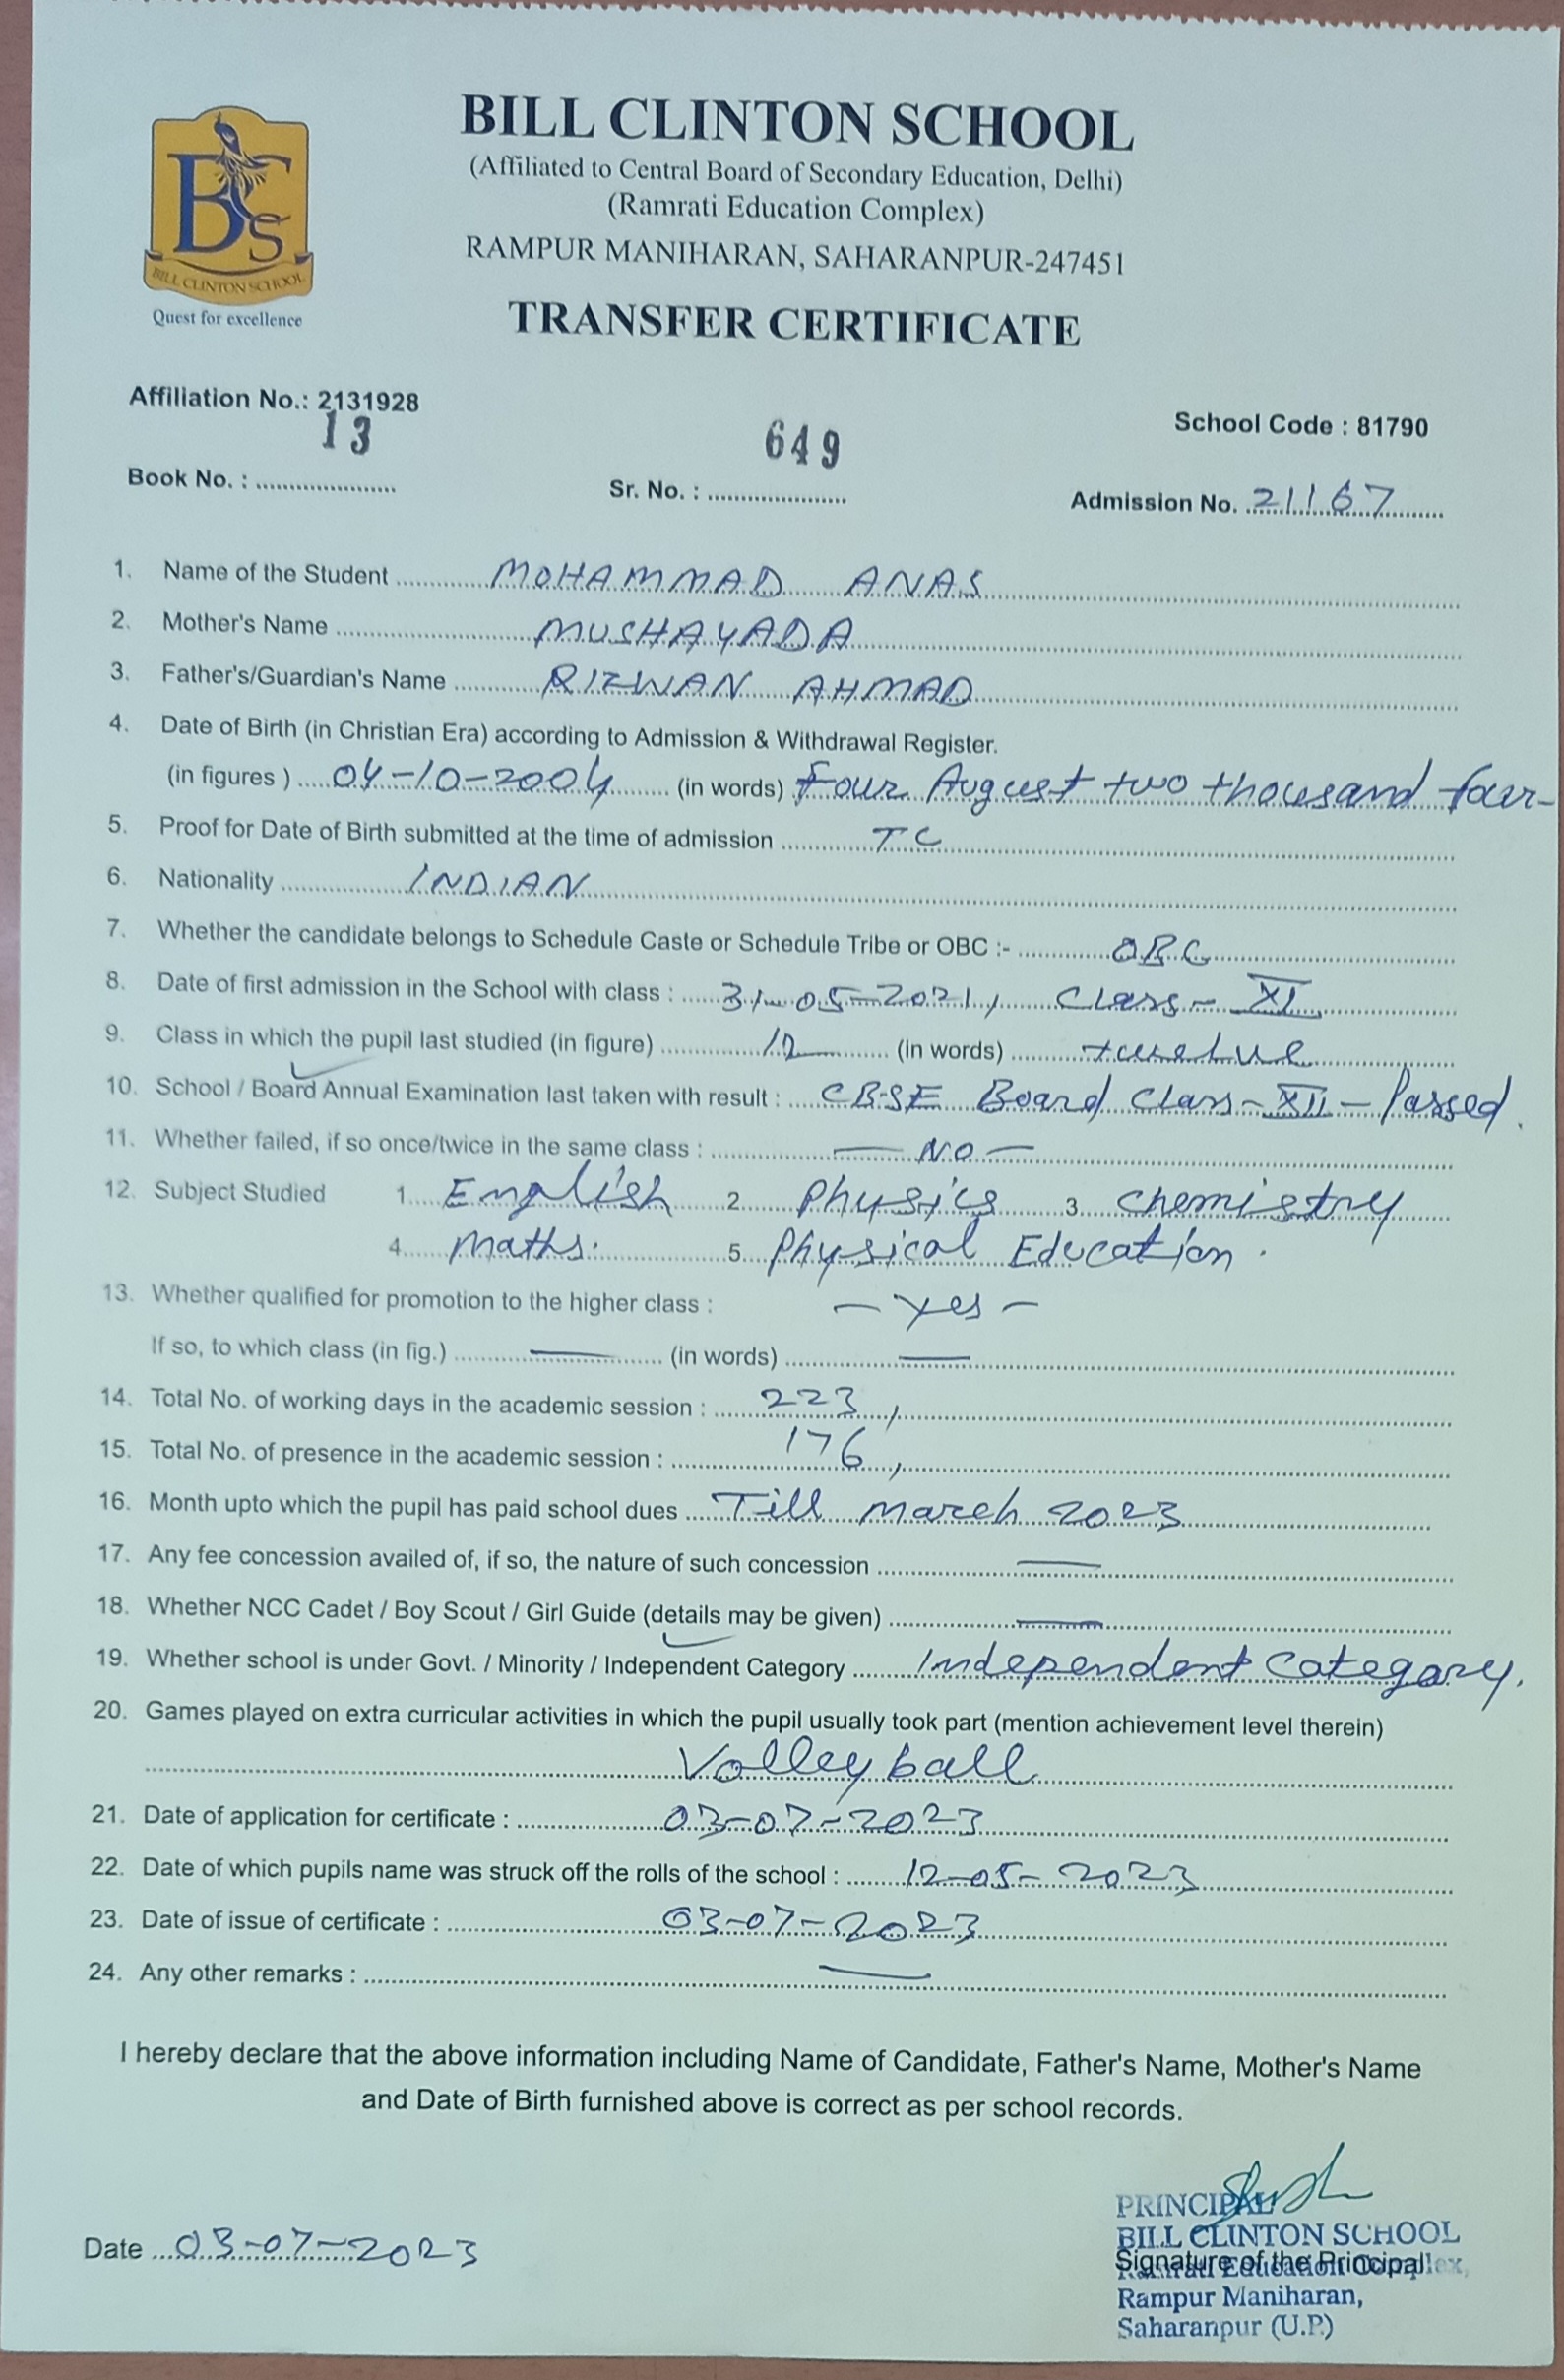 BILL CLINTON SCHOOL
(Affiliated to Central Board of Secondary Education, Delhi)
(Ramrati Education Complex)
RAMPUR MANIHARAN, SAHARANPUR-247451
BCS
BILL CLINTON SCHOOL
Quest for excellence
TRANSFER CERTIFICATE
Affiliation No.: 2131928
School Code : 81790
Book No. : 13 Sr. No. : 649 Admission No. 21167
1. Name of the Student MOHAMMAD ANAS
2. Mother's Name MUSHAYADA
3. Father's/Guardian's Name RIZWAN AHMAD
4. Date of Birth (in Christian Era) according to Admission & Withdrawal Register.
(in figures ) 04-10-2004 (in words) Four August two thousand four-
5. Proof for Date of Birth submitted at the time of admission TC
6. Nationality INDIAN
7. Whether the candidate belongs to Schedule Caste or Schedule Tribe or OBC :- OBC
8. Date of first admission in the School with class : 31-05-2021, Class- XI
9. Class in which the pupil last studied (in figure) 12 (in words) twelve
10. School / Board Annual Examination last taken with result : CBSE Board Class-XII-Passed.
11. Whether failed, if so once/twice in the same class : — NO —
12. Subject Studied 1. English 2. Physics 3. Chemistry
4. Maths. 5. Physical Education.
13. Whether qualified for promotion to the higher class : - Yes -
If so, to which class (in fig.) — (in words) —
14. Total No. of working days in the academic session : 223,
15. Total No. of presence in the academic session : 176,
16. Month upto which the pupil has paid school dues Till March 2023
17. Any fee concession availed of, if so, the nature of such concession —
18. Whether NCC Cadet / Boy Scout / Girl Guide (details may be given) —
19. Whether school is under Govt. / Minority / Independent Category Independent Category.
20. Games played on extra curricular activities in which the pupil usually took part (mention achievement level therein)
Volleyball
21. Date of application for certificate : 03-07-2023
22. Date of which pupils name was struck off the rolls of the school : 12-05-2023
23. Date of issue of certificate : 03-07-2023
24. Any other remarks : —
I hereby declare that the above information including Name of Candidate, Father's Name, Mother's Name
and Date of Birth furnished above is correct as per school records.
PRINCIPAL
BILL CLINTON SCHOOL
Date 03-07-2023
Signature of the Principal
Ramrati Education Complex,
Rampur Maniharan,
Saharanpur (U.P.)